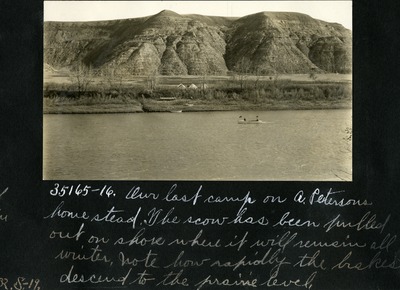 35165-16. Our last camp on A. Petersons
homestead. The scow has been pulled
out on shore where it will remain all
winter. Note how rapidly the brakes
descend to the prairie level.
R. 8-19.